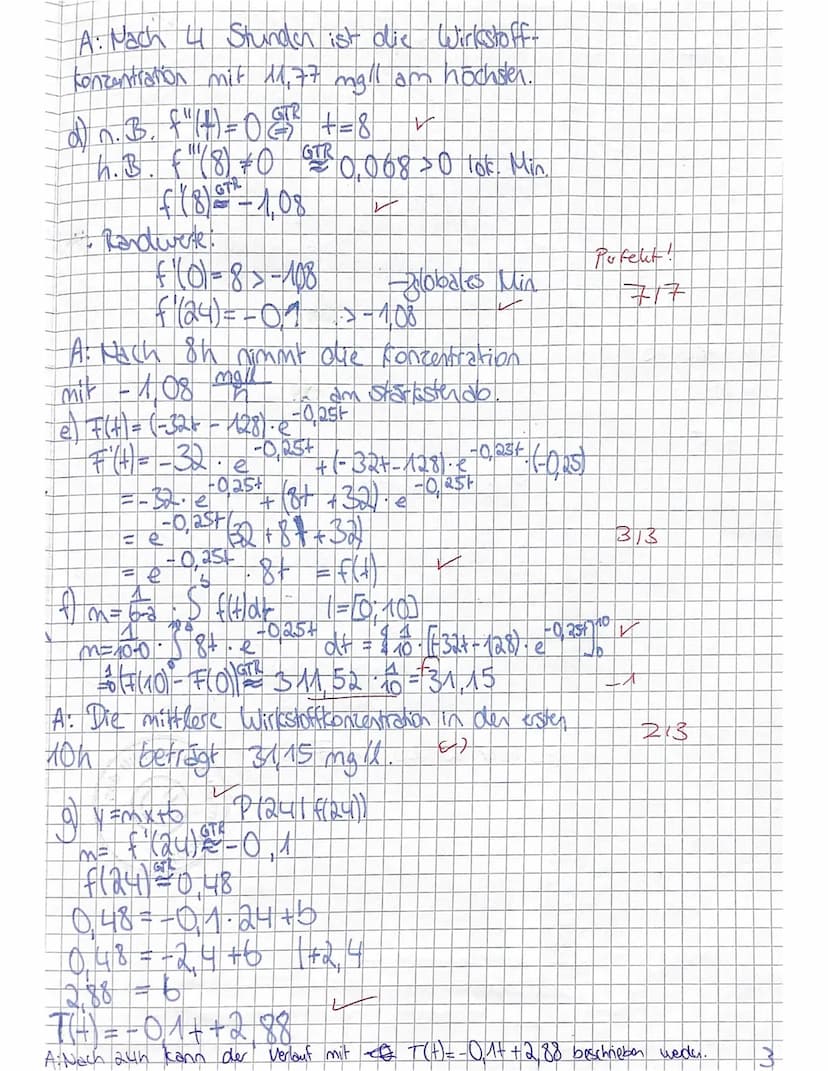 A: Nach 4 Stunden ist die Wirkstoff-
konzentration mit 11,77 mg/l am höchsten.
d) n.B. f''(t)=0 GTR <=> t=8 ✓
h.B. f'''(8)≠0 GTR ≈ 0,068>0 lok. Min.
f'(8) GTR ≈ -1,08 ✓
Randwerte:
Perfekt!
f'(0)=8 > -1,08 → globales Min ✓
7/7
f'(24)=-0,1 > -1,08
A: Nach 8h nimmt die Konzentration
mit -1,08 mg/l / h am stärksten ab.
e) F(t)=(-32t-128)·e^-0,25t
F'(t)=-32·e^-0,25t+(-32t-128)·e^-0,25t·(-0,25)
=-32·e^-0,25t+(8t+32)·e^-0,25t
=e^-0,25t(32+8t+32) 3/3
=e^-0,25t·8t =f(t) ✓
f) m=1/b-a·∫ f(t)dt I=[0;10]
m=1/10-0·∫ 8t·e^-0,25t dt = 1/10·[(-32t-128)·e^-0,25t]10 0 ✓
=1/10(F(10)-F(0)) GTR ≈ 311,52·1/10 = f 31,15 -1
A: Die mittlere Wirkstoffkonzentration in den ersten 2/3
10h beträgt 31,15 mg/l. (✓)
g) y=mx+b ✓ P(24|f(24))
m= f'(24) GTR ≈ -0,1
f(24) GTR = 0,48
0,48=-0,1·24+b
0,48=-2,4+b |+2,4
2,88 = b
T(t)=-0,1t+2,88 ✓
A: Nach 24h kann der Verlauf mit T(t)=-0,1t+2,88 beschrieben werden. 3